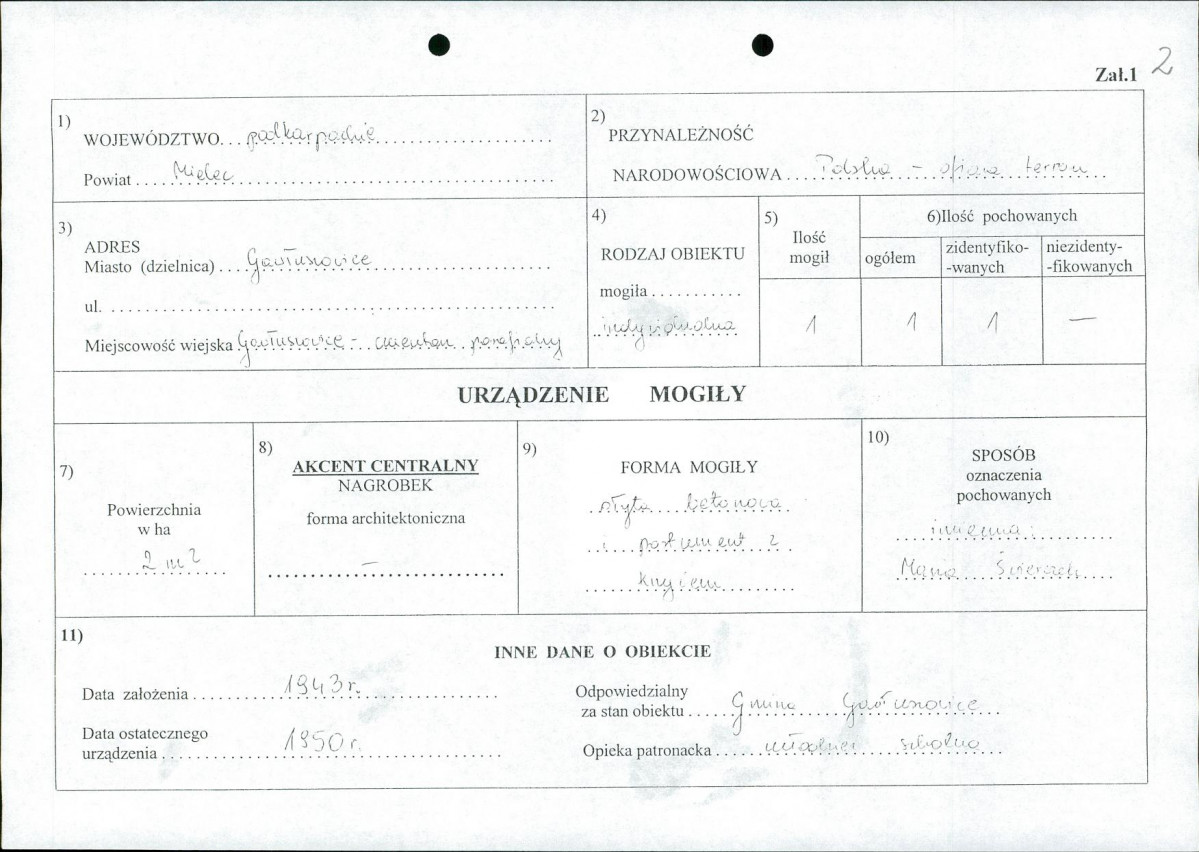 Zał.1 2
1)
WOJEWÓDZTWO...podkarpackie
Powiat....Mielec
2)
PRZYNALEŻNOŚĆ
NARODOWOŚCIOWA....Polska – ofiara terroru
3)
ADRES
Miasto (dzielnica)....Gawłuszowice
ul.
Miejscowość wiejska Gawłuszowice – cmentarz parafialny
4)
RODZAJ OBIEKTU
mogiła
indywidualna
5)
Ilość
mogił
1
6)Ilość pochowanych
ogółem
1
zidentyfiko-
-wanych
1
niezidenty-
-fikowanych
—
URZĄDZENIE MOGIŁY
7)
Powierzchnia
w ha
2 m²
8)
AKCENT CENTRALNY
NAGROBEK
forma architektoniczna
–
9)
FORMA MOGIŁY
płyta betonowa
i postument z
krzyżem
10)
SPOSÓB
oznaczenia
pochowanych
imienna:
Maria
11)
INNE DANE O OBIEKCIE
Data założenia....1943 r.
Data ostatecznego
urządzenia....1950 r.
Odpowiedzialny
za stan obiektu....Gmina Gawłuszowice
Opieka patronacka....młodzież szkolna